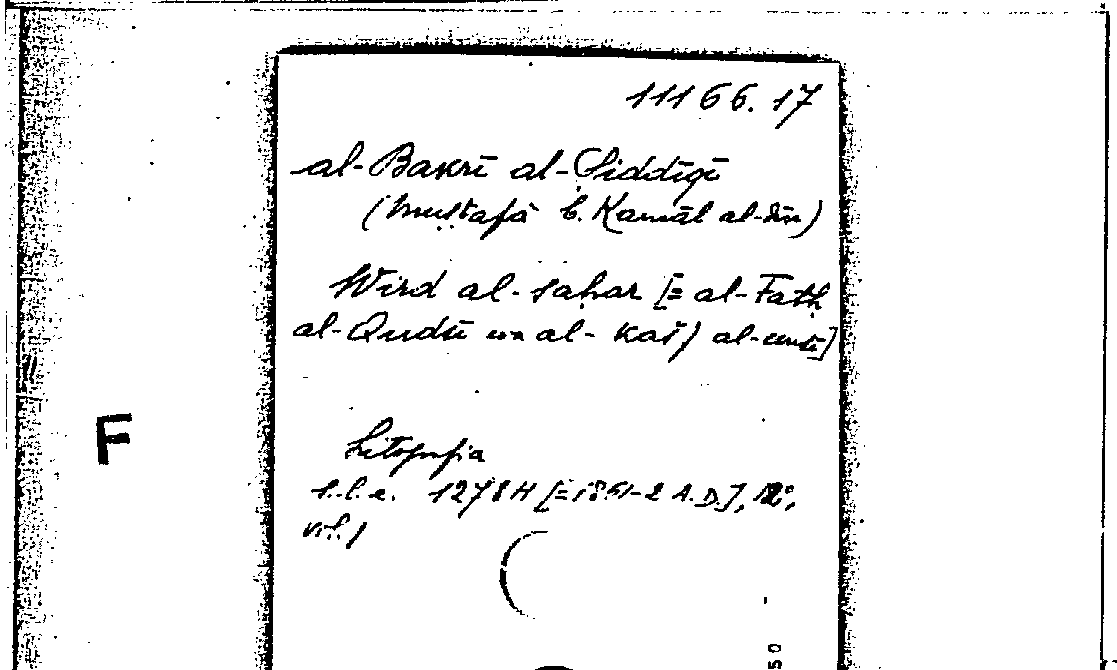 11166.17
al-Bakrī al-Ṣiddīqī
(Muṣṭafà b. Kamāl al-dīn)
Wird al-saḥar [= al-Fatḥ
al-Qudsī wa al-kašf al-unsī]
F
Litografia
s.l.e. 1278 H [= 1861-2 A.D.], 12°,
vol. 1
50